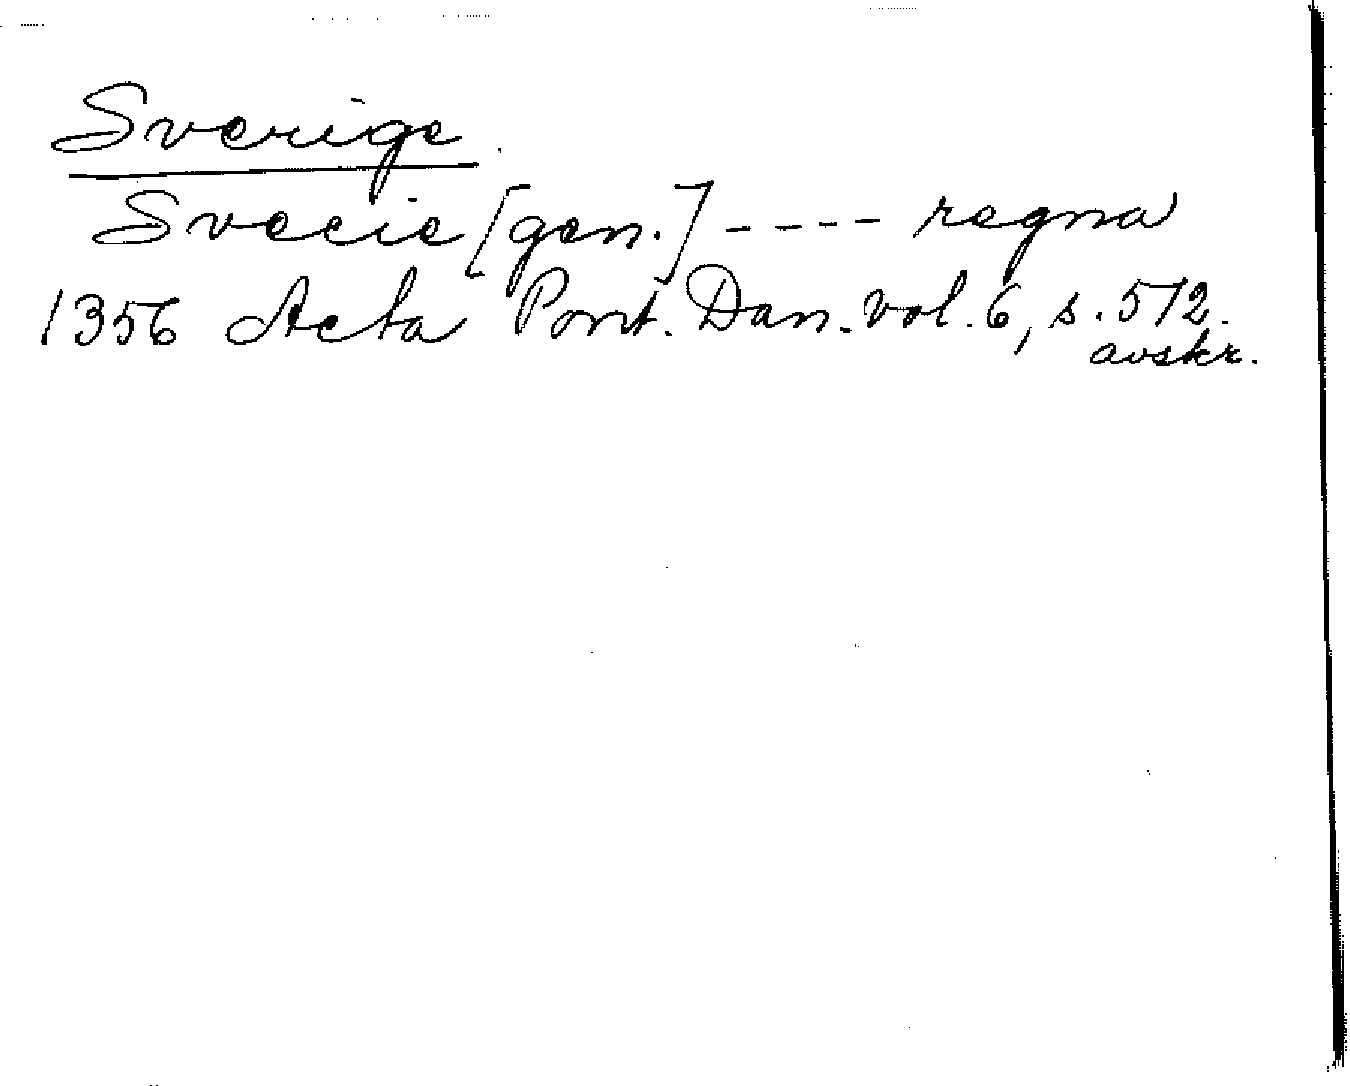 Sverige
Svecie [gen.] - - - - regna
1356 Acta Pont. Dan. vol. 6, s. 512.
avskr.